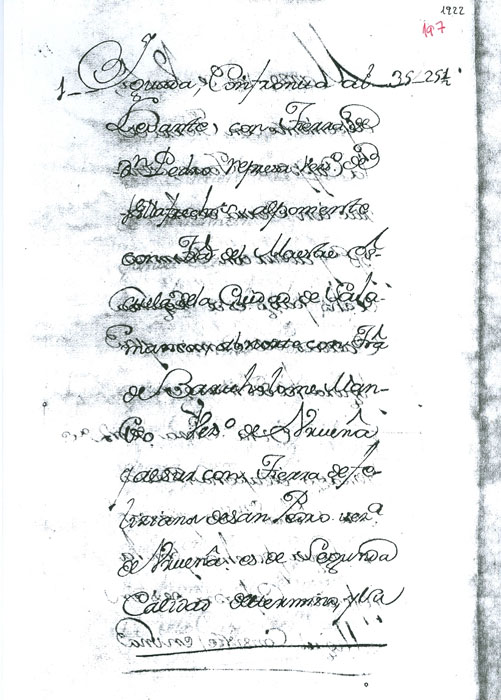 1922
197
1 Segunda, Confronta al 35 25¼
Levante, con Tierra de
Dn. Pedro Represa vezº. de
Villafrechs. alponiente
con Tra. del Maestre es-
cuela de la Ciudad de Sala-
manca, al norte con Tra.
de Bartholome Man-
so Vezº. de Urueña
y alsur con Tierra de Fe-
liziano desan Pedro vezº.
de Urueña. es de Segunda
Calidad determino, y la